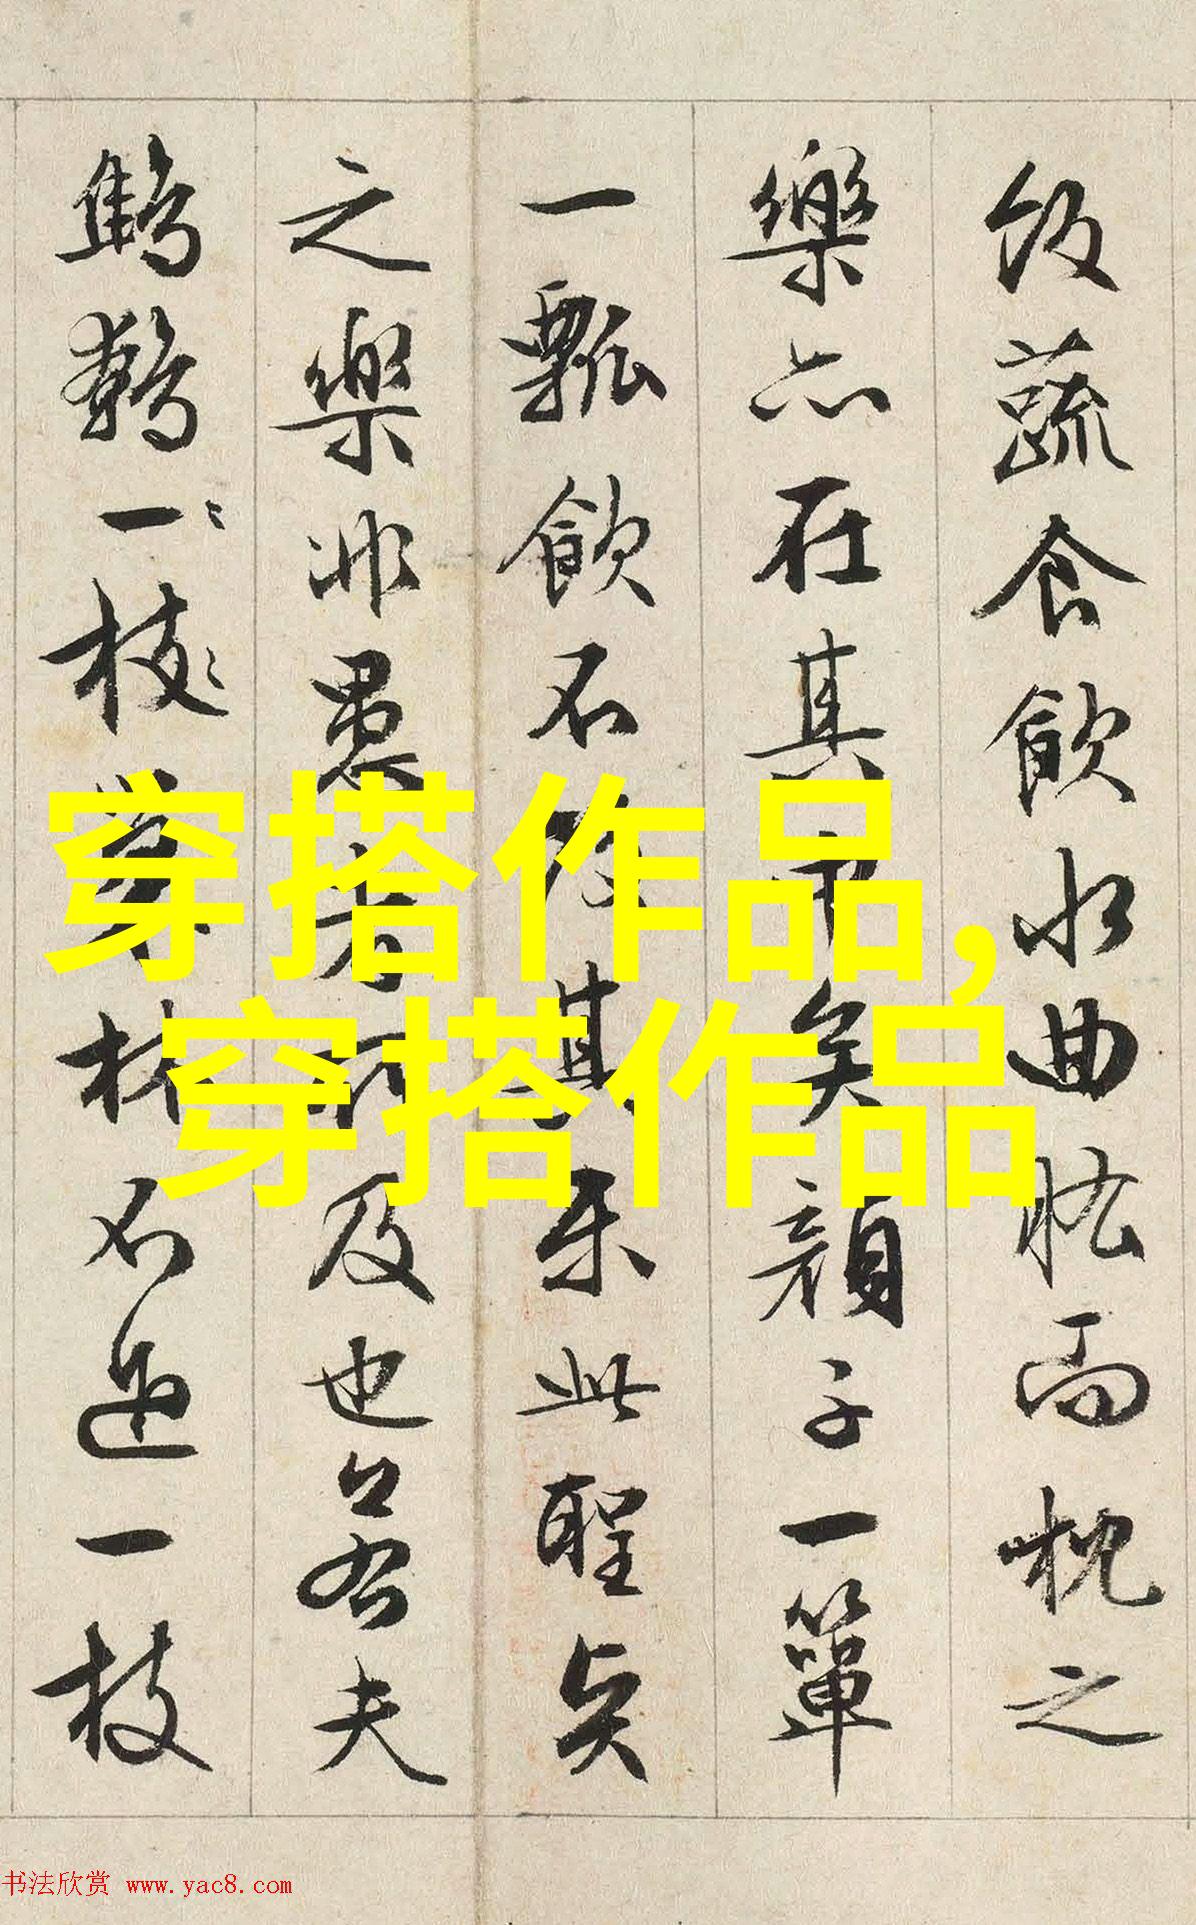 飯蔬食飲水曲肱而枕之
樂亦在其中矣顏子一簞
一瓢飲不改其樂此聖賢
之樂非愚者所及也若夫
鷦鷯一枝巢林不過一枝
穿搭作品,
穿搭作品
书法欣赏 www.yac8.com